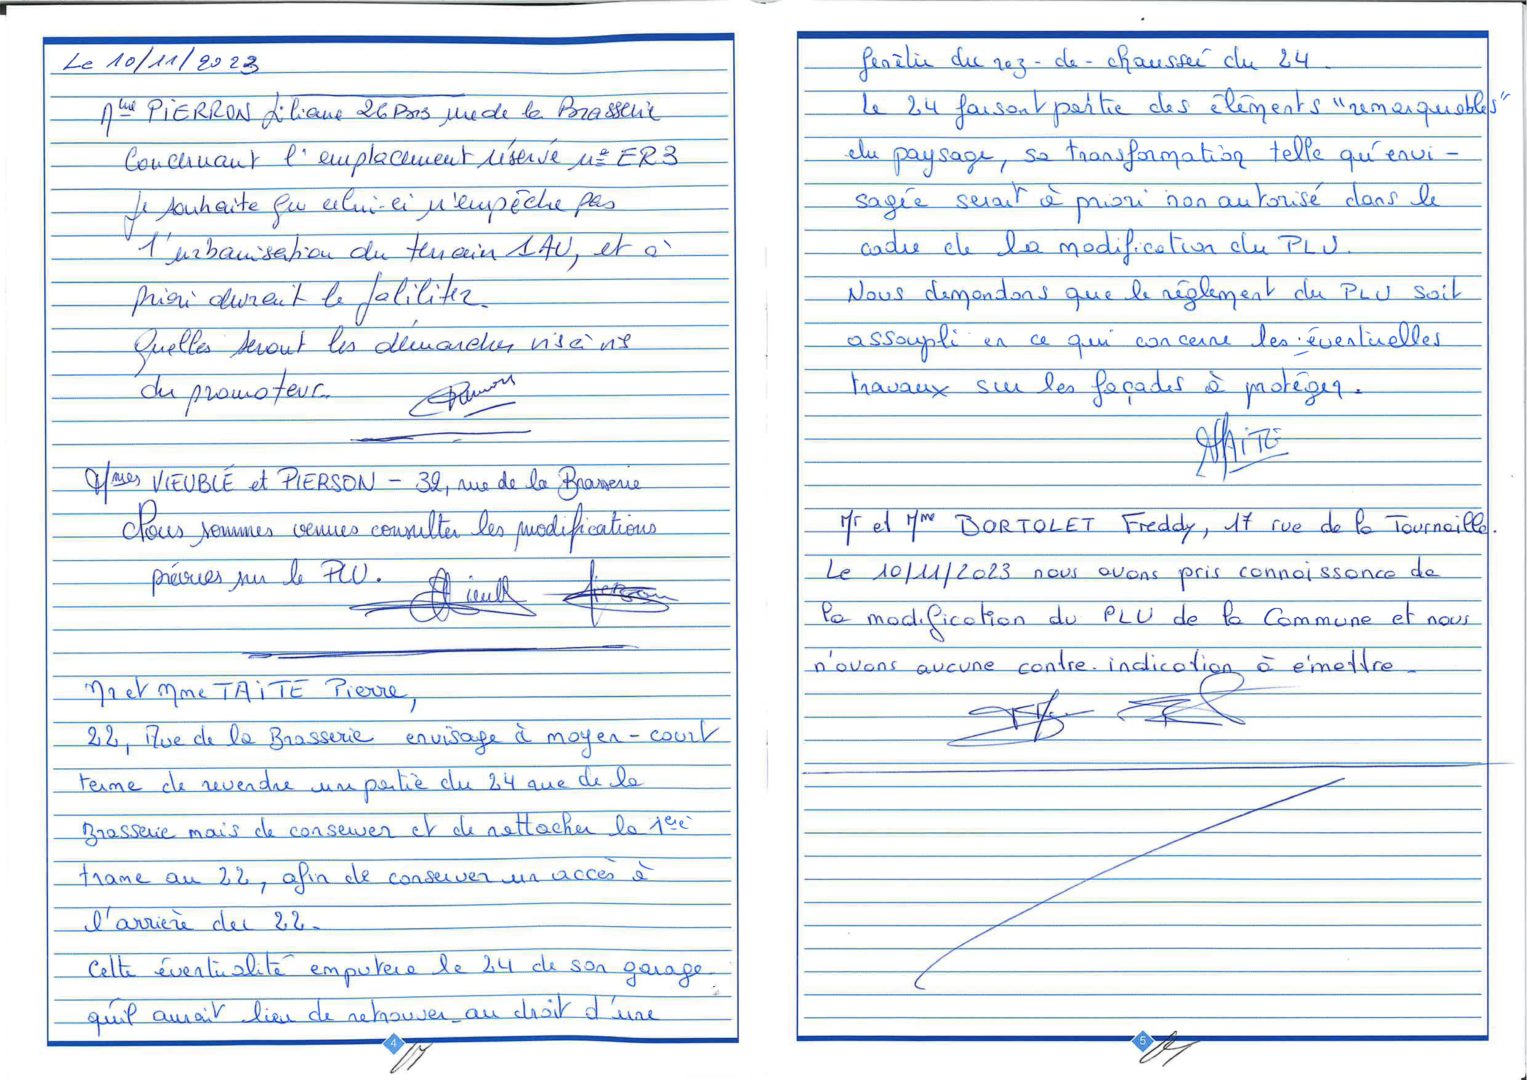 Le 10/11/2023
Mme PIERRON Liliane 26 Bis rue de la Brasserie
Concernant l'emplacement réservé n° ER3
Je souhaite que celui-ci n'empêche pas
l'urbanisation du terrain 1AU, et à
priori devrait le faliliter.
Quelles seront les démarches vis à vis
du promoteur.
Mmes VIEUBLÉ et PIERSON - 32, rue de la Brasserie
Nous sommes venues consulter les modifications
prévues sur le PLU.
Mr et Mme TAITE Pierre,
22, Rue de la Brasserie envisage à moyen-court
terme de revendre une partie du 24 rue de la
Brasserie mais de conserver et de rattacher la 1ère
trame au 22, afin de conserver un accès à
l'arrière du 22.
Cette éventualité emputera le 24 de son garage
qu'il aurait lieu de retrouver au droit d'une
4
fenêtre du rez-de-chaussée du 24.
Le 24 faisant partie des éléments "remarquables"
du paysage, sa transformation telle qu'envi-
sagée serait à priori non autorisé dans le
cadre de la modification du PLU.
Nous demandons que le règlement du PLU soit
assoupli en ce qui concerne les éventuelles
travaux sur les façades à protéger.
TAITE
Mr et Mme BORTOLET Freddy, 17 rue de la Tournaille.
Le 10/11/2023 nous avons pris connaissance de
la modification du PLU de la Commune et nous
n'avons aucune contre-indication à émettre.
5